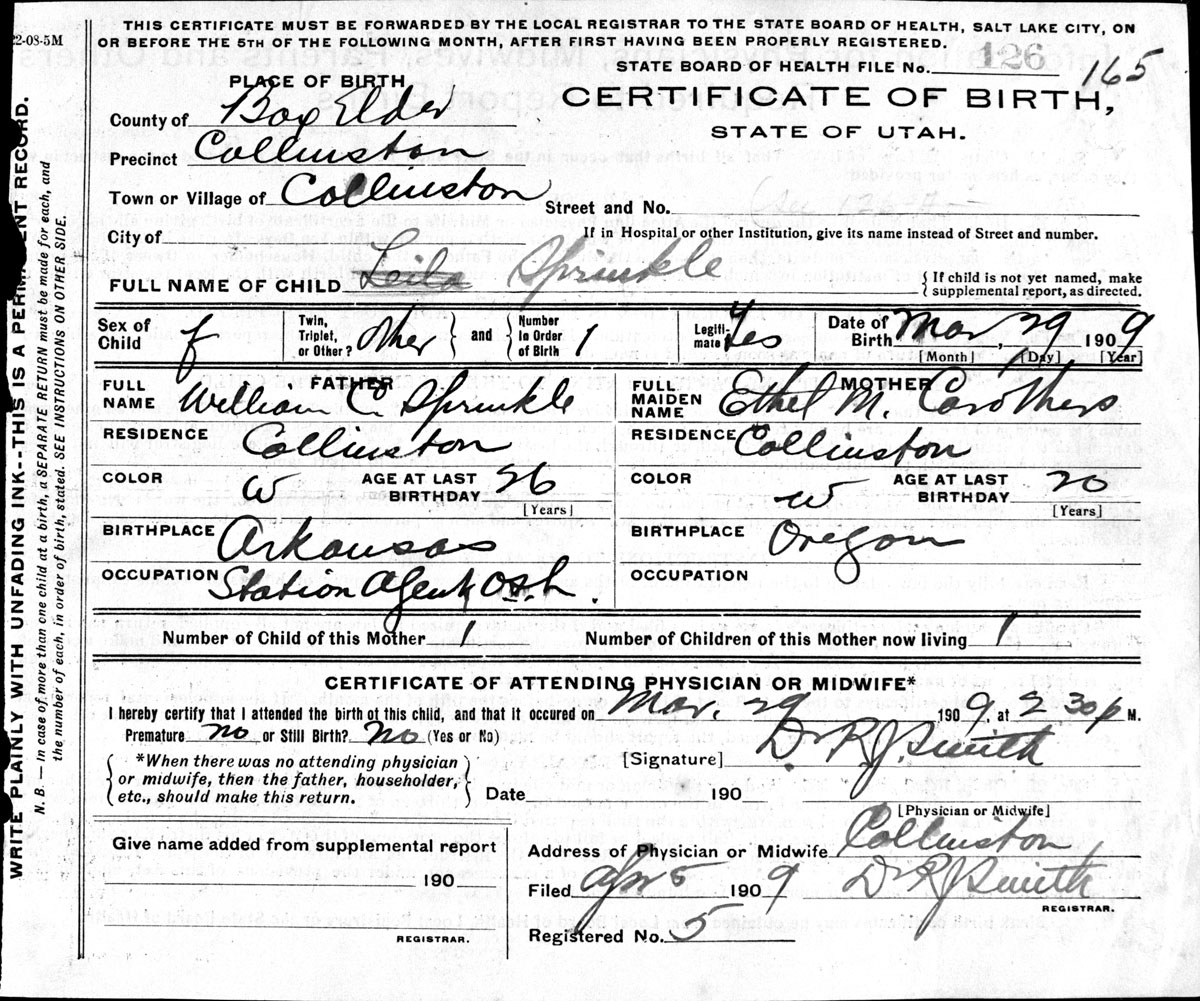 22-08-5M
THIS CERTIFICATE MUST BE FORWARDED BY THE LOCAL REGISTRAR TO THE STATE BOARD OF HEALTH, SALT LAKE CITY, ON
OR BEFORE THE 5TH OF THE FOLLOWING MONTH, AFTER FIRST HAVING BEEN PROPERLY REGISTERED.
STATE BOARD OF HEALTH FILE No. 126 165
PLACE OF BIRTH
CERTIFICATE OF BIRTH,
STATE OF UTAH.
County of Box Elder
Precinct Collinston
Town or Village of Collinston
Street and No.
City of
If in Hospital or other Institution, give its name instead of Street and number.
FULL NAME OF CHILD Leila Sprinkle
If child is not yet named, make
supplemental report, as directed.
Sex of Child f
Twin, Triplet, or Other? Other and Number in Order of Birth 1
Legitimate Yes
Date of Birth Mar, 29 1909
[Month] [Day] [Year]
FATHER
FULL NAME William C. Sprinkle
RESIDENCE Collinston
COLOR W AGE AT LAST BIRTHDAY 26
[Years]
BIRTHPLACE Arkansas
OCCUPATION Station Agent
MOTHER
FULL MAIDEN NAME Ethel M. Carothers
RESIDENCE Collinston
COLOR W AGE AT LAST BIRTHDAY 20
[Years]
BIRTHPLACE Oregon
OCCUPATION
Number of Child of this Mother 1 Number of Children of this Mother now living 1
CERTIFICATE OF ATTENDING PHYSICIAN OR MIDWIFE*
I hereby certify that I attended the birth of this child, and that it occured on Mar. 29 1909, at 2 30 p M.
Premature no or Still Birth? no (Yes or No)
[Signature] Dr R J Smith
*When there was no attending physician
or midwife, then the father, householder,
etc., should make this return.
Date 190
[Physician or Midwife]
Give name added from supplemental report
190
REGISTRAR.
Address of Physician or Midwife Collinston
Filed Apr 5 1909 Dr R J Smith
REGISTRAR.
Registered No. 5
WRITE PLAINLY WITH UNFADING INK--THIS IS A PERMANENT RECORD.
N. B. — In case of more than one child at a birth, a SEPARATE RETURN must be made for each, and
the number of each, in order of birth, stated. SEE INSTRUCTIONS ON OTHER SIDE.